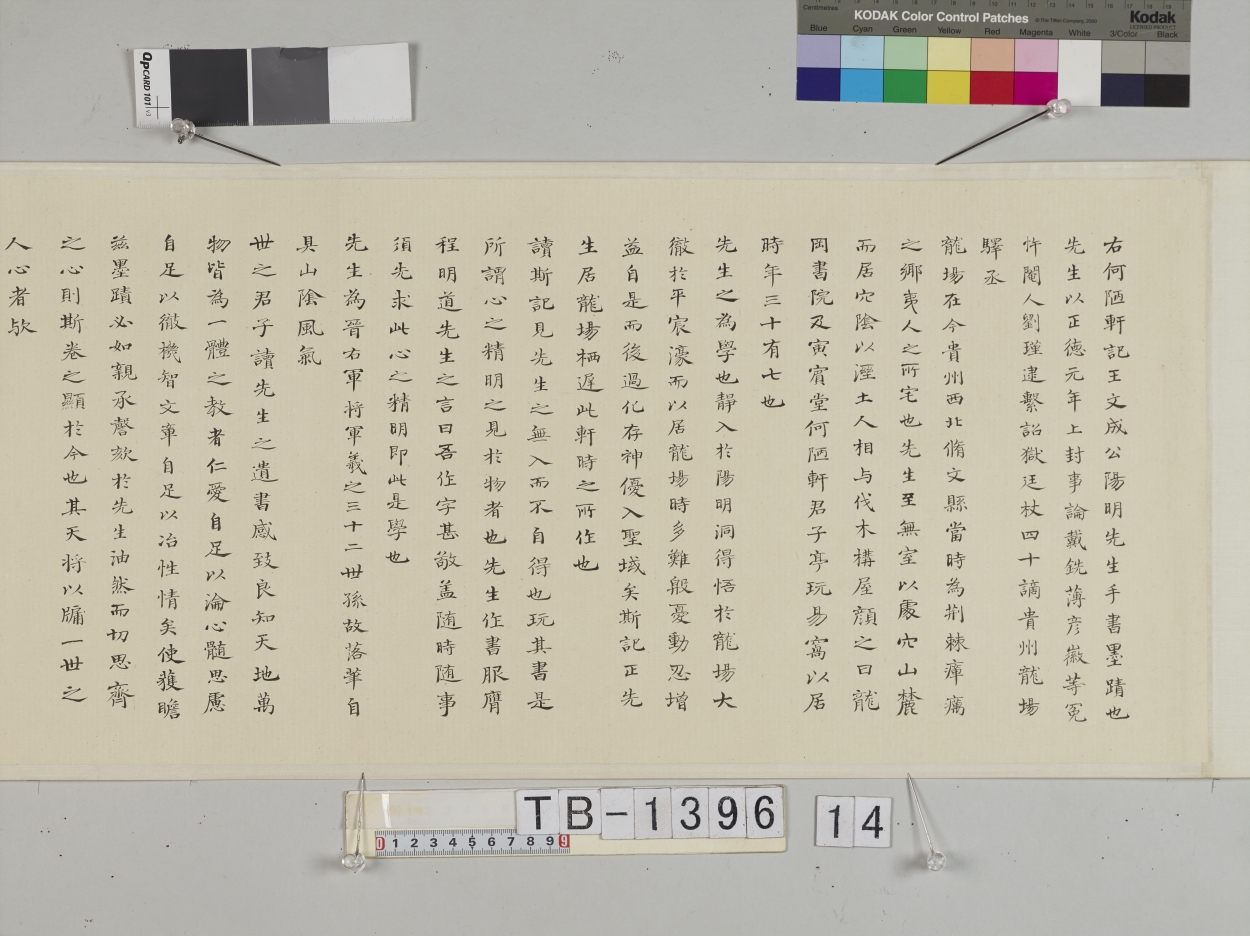 Centimetres
KODAK Color Control Patches
© The Tiffen Company, 2000
Kodak
LICENSED PRODUCT
Blue Cyan Green Yellow Red Magenta White 3/Color Black
QPCARD 101 v3
右何陋軒記王文成公陽明先生手書墨蹟也
先生以正德元年上封事論戴銑薄彦徽等冤
忤閹人劉瑾逮繫詔獄廷杖四十謫貴州龍場
驛丞
龍場在今貴州西北脩文縣當時為荆棘瘴癘
之鄉夷人之所宅也先生至無室以處穴山麓
而居穴陰以溼土人相与伐木構屋顔之曰龍
岡書院及寅賓堂何陋軒君子亭玩易窩以居
時年三十有七也
先生之為學也靜入於陽明洞得悟於龍場大
徹於平宸濠而以居龍場時多難殷憂動忍增
益自是而後過化存神優入聖域矣斯記正先
生居龍場栖遲此軒時之所作也
讀斯記見先生之無入而不自得也玩其書是
所謂心之精明之見於物者也先生作書服膺
程明道先生之言曰吾作字甚敬盖随時随事
須先求此心之精明即此是學也
先生為晉右軍将軍羲之三十二世孫故落華自
具山陰風氣
世之君子讀先生之遺書感致良知天地萬
物皆為一體之教者仁愛自足以淪心髓思慮
自足以徹機智文章自足以冶性情矣使獲瞻
茲墨蹟必如親承謦欬於先生油然而切思齊
之心則斯卷之顯於今也其天将以牖一世之
人心者欤
0 1 2 3 4 5 6 7 8 9 9
TB-1396
14